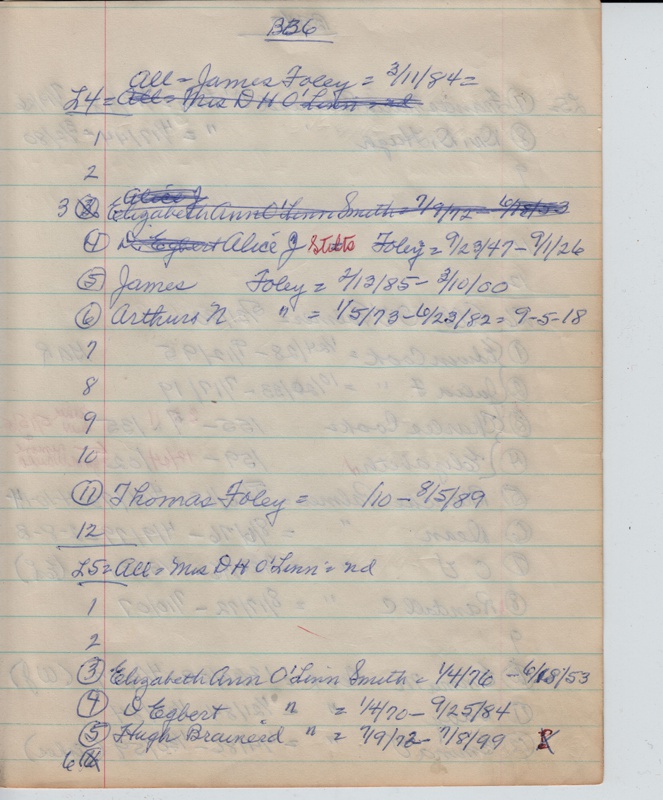 BB6
All = James Foley = 3/11/84 =
L4 = All = Mrs D H O'Linn = nd
1
2
Alice J
3 Elizabeth Ann O'Linn Smith = 7/9/72 - 6/18/53
4 D. Egbert Alice J Stubts Foley = 9/23/47 - 9/1/26
5 James Foley = 2/13/85 - 3/10/00
6 Arthurs N " = 1/5/73 - 6/23/82 = 9-5-18
7
8
9
10
11 Thomas Foley = /10 - 8/5/89
12
L5 = All = Mrs D H O'Linn = nd
1
2
3 Elizabeth Ann O'Linn Smith = 1/4/76 - 6/18/53
4 D Egbert " = 1/4/70 - 9/25/84
5 Hugh Braineed " = 7/9/72 - 7/8/99
6